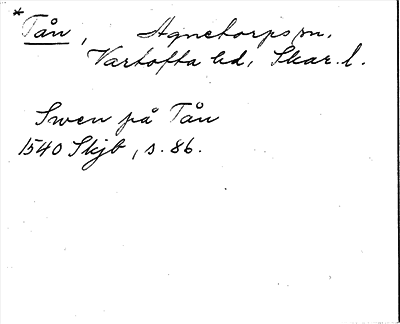 * Tån, Agnetorps sn.
Vartofta hd, Skar. l.
Swen på Tån
1540 Skjb, s. 86.